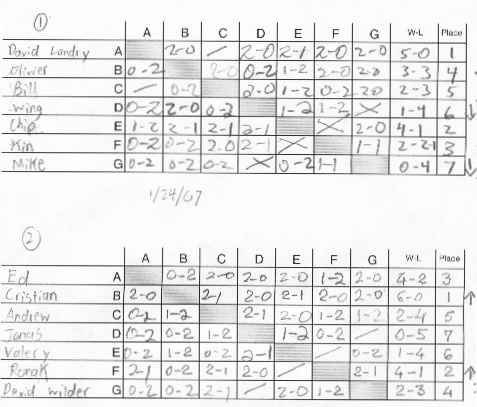 ①
A B C D E F G W-L Place
David Landry A 2-0 / 2-0 2-1 2-0 2-0 5-0 1
Olivier B 0-2 2-0 0-2 1-2 2-0 2-0 3-3 4
Bill C / 0-2 2-0 1-2 0-2 2-0 2-3 5
Wing D 0-2 2-0 0-2 1-2 1-2 X 1-4 6
Chip E 1-2 2-1 2-1 2-1 X 2-0 4-1 2
Kin F 0-2 0-2 2-0 2-1 X 1-1 2-2-1 3
Mike G 0-2 0-2 0-2 X 0-2 1-1 0-4 7
1/24/07
②
A B C D E F G W-L Place
Ed A 0-2 2-0 2-0 2-0 1-2 2-0 4-2 3
Cristian B 2-0 2-1 2-0 2-1 2-0 2-0 6-0 1
Andrew C 0-2 1-2 2-1 2-0 1-2 1-2 2-4 5
Jonas D 0-2 0-2 1-2 1-2 0-2 / 0-5 7
Valery E 0-2 1-2 0-2 2-1 / 0-2 1-4 6
Ronak F 2-1 0-2 2-1 2-0 / 2-1 4-1 2
David wilder G 0-2 0-2 2-1 / 2-0 1-2 2-3 4